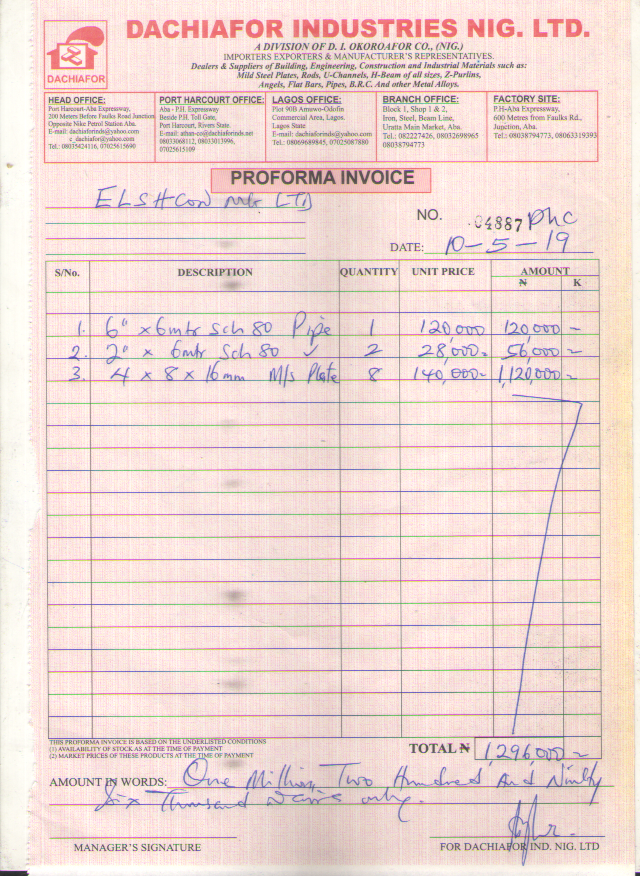 DACHIAFOR INDUSTRIES NIG. LTD.
DACHIAFOR
A DIVISION OF D. I. OKOROAFOR CO., (NIG.)
IMPORTERS EXPORTERS & MANUFACTURER'S REPRESENTATIVES.
Dealers & Suppliers of Building, Engineering, Construction and Industrial Materials such as:
Mild Steel Plates, Rods, U-Channels, H-Beam of all sizes, Z-Purlins,
Angels, Flat Bars, Pipes, B.R.C. And other Metal Alloys.
HEAD OFFICE:
Port Harcourt-Aba Expressway,
200 Meters Before Faulks Road Junction
Opposite Nike Petrol Station Aba.
E-mail: dachiaforinds@yahoo.com
c_dachiafor@yahoo.com
Tel.: 08035424116, 07025615690
PORT HARCOURT OFFICE:
Aba - P.H. Expressway
Beside P.H. Toll Gate,
Port Harcourt, Rivers State.
E-mail: athan-co@dachiaforinds.net
08033068112, 08033013996,
07025615109
LAGOS OFFICE:
Plot 90B Amuwo-Odofin
Commercial Area, Lagos.
Lagos State
E-mail: dachiaforinds@yahoo.com
Tel.: 08069689845, 07025087880
BRANCH OFFICE:
Block 1, Shop 1 & 2,
Iron, Steel, Beam Line,
Uratta Main Market, Aba.
Tel.: 082227426, 08032698965
08038794773
FACTORY SITE:
P.H-Aba Expressway,
600 Metres from Faulks Rd.,
Junction, Aba.
Tel.: 08038794773, 08063319393
PROFORMA INVOICE
ELSHCON LTD
NO. 04887 PHC
DATE: 10-5-19
S/No. DESCRIPTION QUANTITY UNIT PRICE AMOUNT
₦ K
1. 6" x 6mtr Sch 80 Pipe 1 120,000 120,000 =
2. 2" x 6mtr Sch 80 ✓ 2 28,000= 56,000 =
3. 4 x 8 x 16mm M/s Plate 8 140,000= 1,120,000 =
THIS PROFORMA INVOICE IS BASED ON THE UNDERLISTED CONDITIONS
(1) AVAILABILITY OF STOCK AS AT THE TIME OF PAYMENT
(2) MARKET PRICES OF THESE PRODUCTS AT THE TIME OF PAYMENT
TOTAL ₦ 1,296,000 =
AMOUNT IN WORDS: One Million Two Hundred And Ninty
Six Thousand Naira only.
MANAGER'S SIGNATURE
FOR DACHIAFOR IND. NIG. LTD